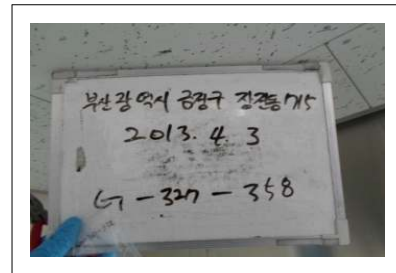 부산광역시 금정구 장전동 715
2013. 4. 3
G - 327 - 358